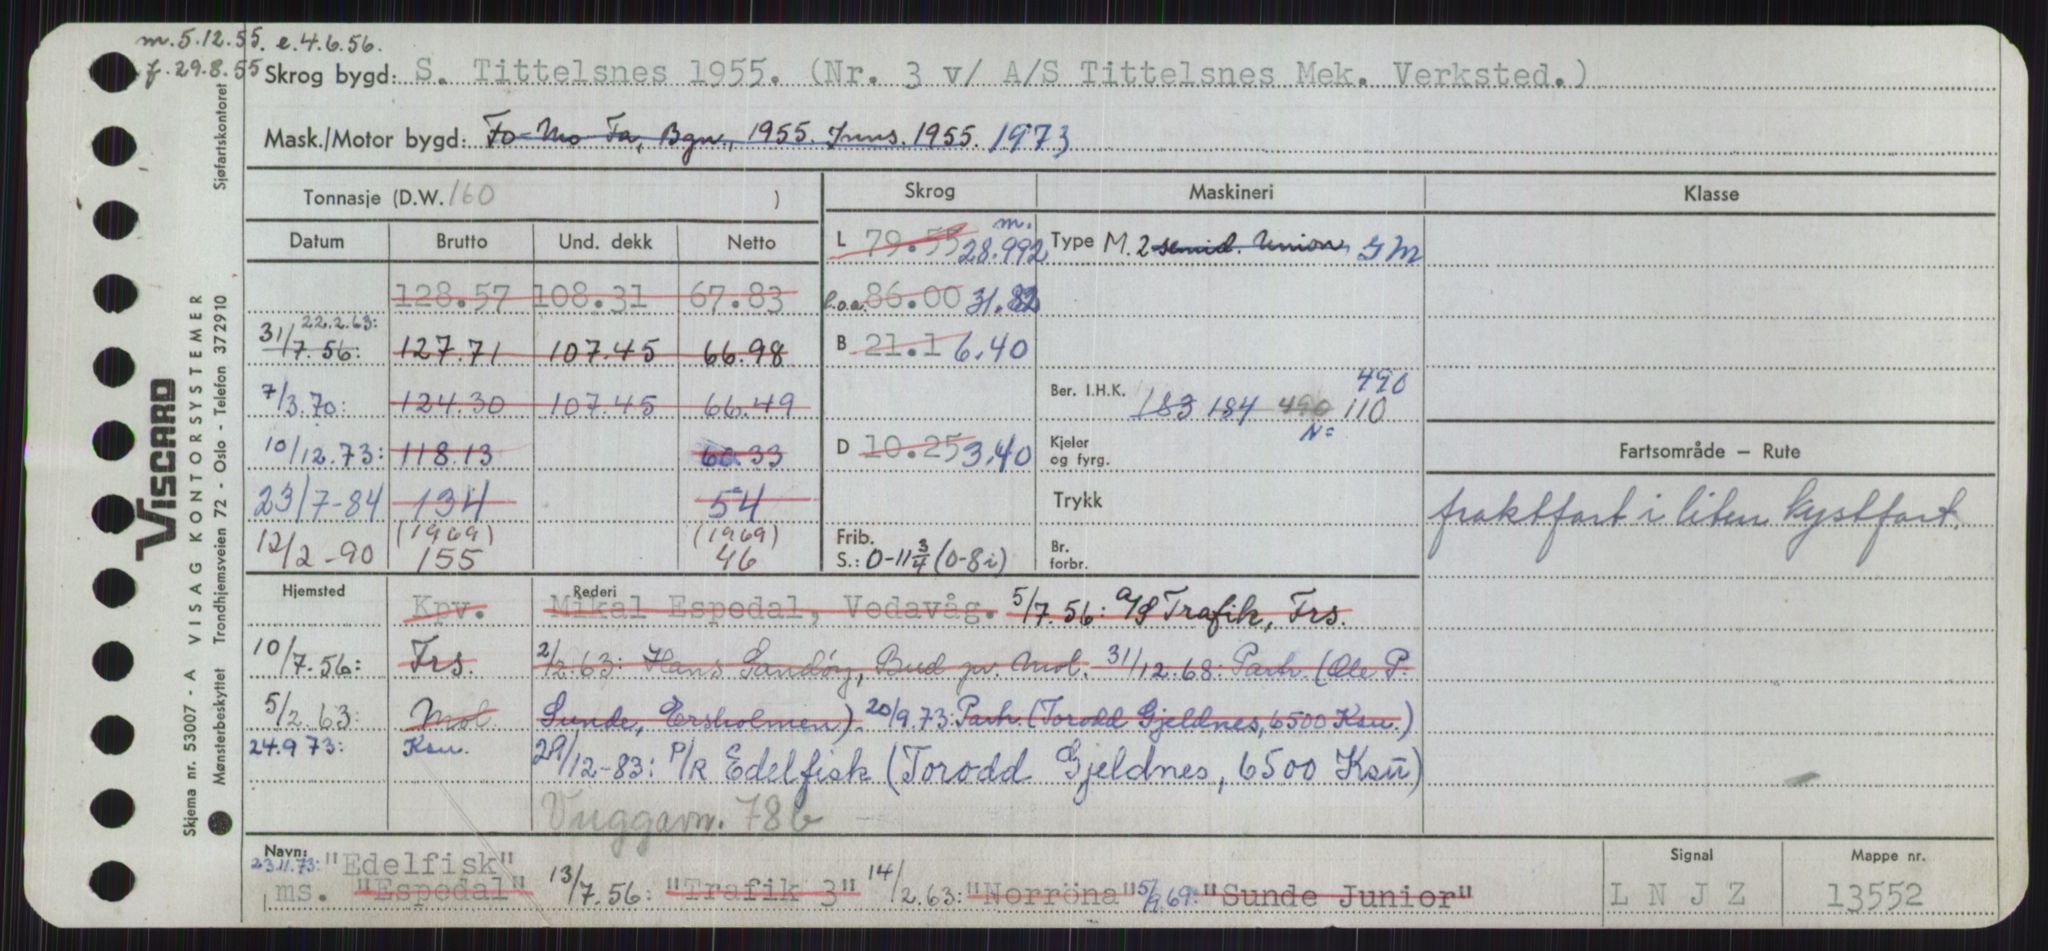 m. 5.12.55. e. 4.6.56.
f. 29.8.55
Skrog bygd: S. Tittelsnes 1955. (Nr. 3 v/ A/S Tittelsnes Mek. Verksted.)
Mask./Motor bygd: Fo-Mo Fa, Bgn., 1955. Inns. 1955. 1973
Tonnasje (D.W. 160 )
Skrog Maskineri Klasse
Datum Brutto Und. dekk Netto
L 79.55 m. 28.992 Type M. 2 semid. Union GM
128.57 108.31 67.83
l.o.a. 86.00 31.82
22.2.63:
31/7.56: 127.71 107.45 66.98
B 21.1 6.40
7/3.70: 124.30 107.45 66.49
Ber. I.H.K. 183 184 490 110 490
N=
10/12.73: 118.13 60.33
D 10.25 3.40 Kjeler og fyrg.
Fartsområde – Rute
23/7-84 134 54
Trykk
fraktfart i liten kystfart.
12/2-90 (1969) 155 (1969) 46
Frib. S.: 0-11 3/4 (0-8i) Br. forbr.
Hjemsted Rederi
Kpv. Mikal Espedal, Vedavåg. 5/7.56: A/S Trafik, Frs.
10/7.56: Frs. 2/2.63: Hans Sandøy, Bud pr. Mol. 31/12.68: Partr. (Ole P.
5/2.63: Mol. Sunde, Ersholmen). 20/9.73: Partr. (Torodd Gjeldnes, 6500 Ksu.)
24.9.73: Ksu. 29/12-83: P/R Edelfisk (Torodd Gjeldnes, 6500 Ksu)
Vuggavn. 78b
Navn: 23.11.73: "Edelfisk"
ms. "Espedal" 13/7.56: "Trafik 3" 14/2.63: "Norröna" 5/9.69: "Sunde Junior"
Signal
L N J Z
Mappe nr.
13552
VISCARD
VISAG KONTORSYSTEMER
Skjema nr. 53007 - A
Mønsterbeskyttet Trondhjemsveien 72 - Oslo - Telefon 372910
Sjøfartskontoret